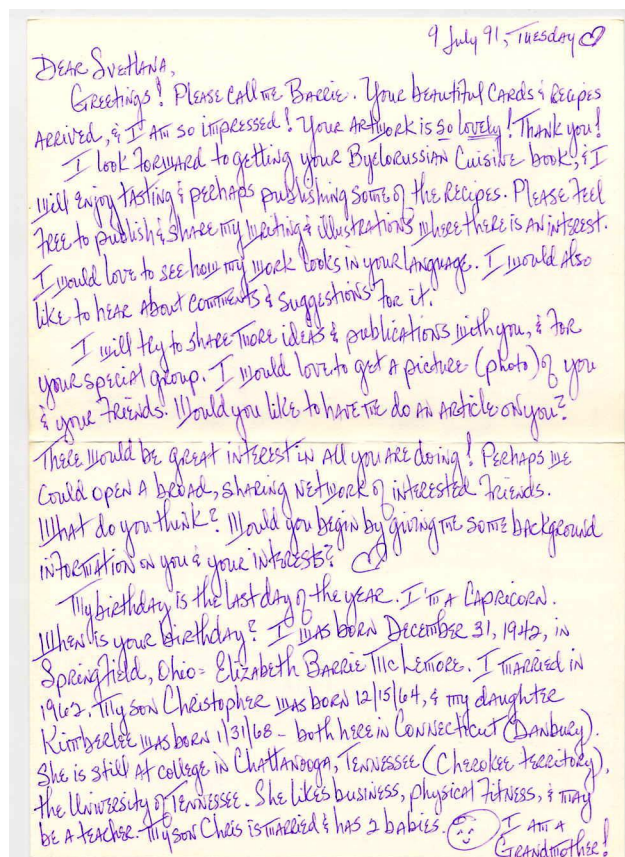 9 July 91, Tuesday ♡
Dear Svetlana,
Greetings! Please call me Barrie. Your beautiful cards & recipes
arrived, & I am so impressed! Your artwork is so lovely! Thank you!
I look forward to getting your Byelorussian Cuisine book, & I
will enjoy tasting & perhaps publishing some of the recipes. Please feel
free to publish & share my writing & illustrations where there is an interest.
I would love to see how my work looks in your language. I would also
like to hear about comments & suggestions for it.
I will try to share more ideas & publications with you, & for
your special group. I would love to get a picture (photo) of you
& your friends. Would you like to have me do an article on you?
There would be great interest in all you are doing! Perhaps we
could open a broad, sharing network of interested friends.
What do you think? Would you begin by giving me some background
information on you & your interests? ♡
My birthday is the last day of the year. I'm a Capricorn.
When is your birthday? I was born December 31, 1942, in
Springfield, Ohio = Elizabeth Barrie McLemore. I married in
1962. My son Christopher was born 12/15/64, & my daughter
Kimberlee was born 1/31/68 - both here in Connecticut (Danbury).
She is still at college in Chattanooga, Tennessee (Cherokee territory),
the University of Tennessee. She likes business, physical fitness, & may
be a teacher. My son Chris is married & has 2 babies. I am a
Grandmother!